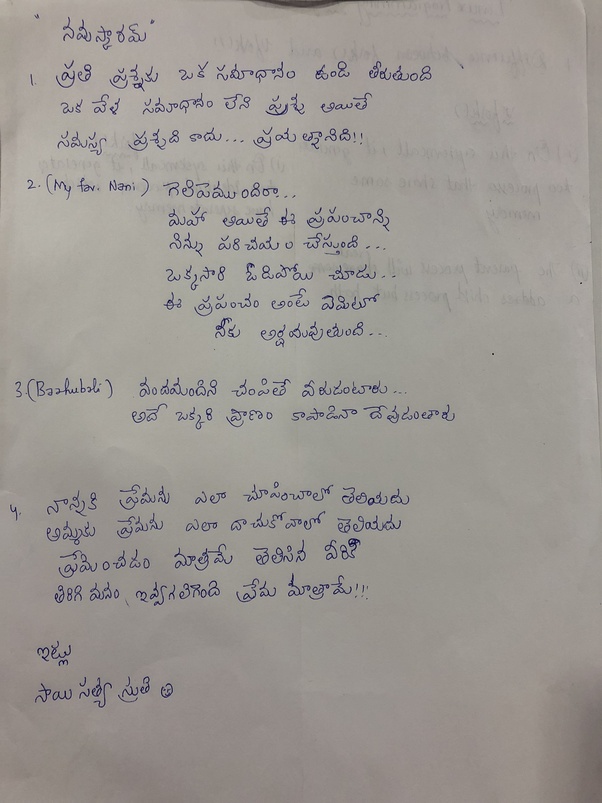 "నమస్కారమ్"
1. ప్రతి ప్రశ్నకు ఒక సమాధానం ఉండి తీరుతుంది
ఒక వేళ సమాధానం లేని ప్రశ్న అయితే
సమస్య ప్రశ్నది కాదు... ప్రయత్నానిది!!
2. (My fav. Nani) గెలిపేముందిరా...
మహా అయితే ఈ ప్రపంచాన్ని
నిన్ను పరిచయం చేస్తుంది...
ఒక్కసారి ఓడిపోయి చూడు..
ఈ ప్రపంచం అంటే ఏమిటో
నీకు అర్థమవుతుంది...
3. (Baahubali) వందమందిని చంపితే వీరుడంటారు...
అదే ఒక్కరి ప్రాణం కాపాడినా దేవుడంతారు
4. నాన్నకి ప్రేమను ఎలా చూపించాలో తెలియదు
అమ్మకు ప్రేమను ఎలా దాచుకోవాలో తెలియదు
ప్రేమించడం మాత్రమే తెలిసిన వీరికి
తిరిగి మనం ఇవ్వగలిగింది ప్రేమ మాత్రామే!!!
ఇట్లు
సాయి సత్య స్రుతి